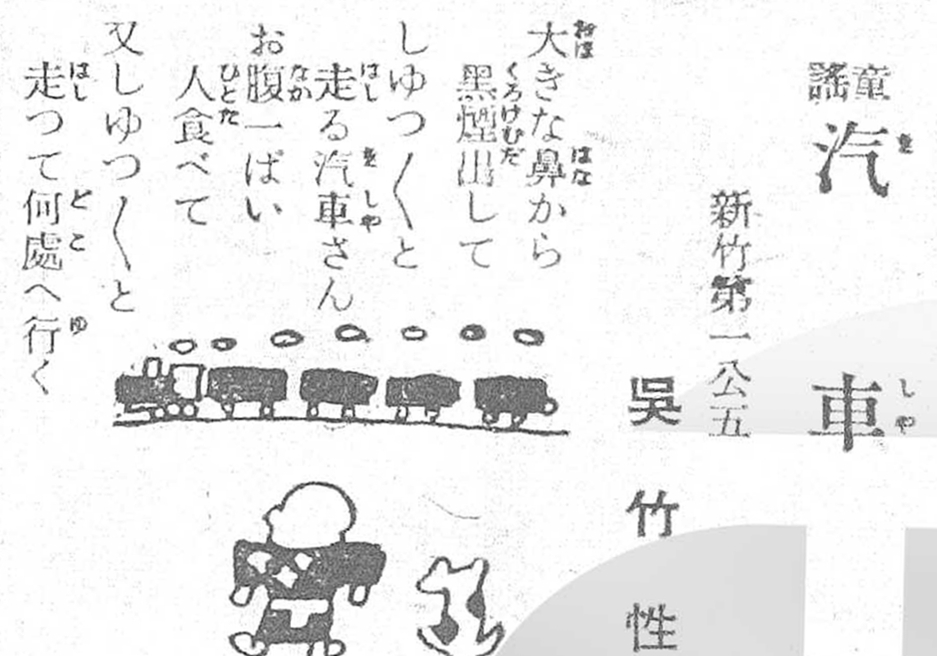 童謠 汽車
新竹第一公五
吳竹性
大きな鼻から
黑煙出して
しゆつ〱と
走る汽車さん
お腹一ぱい
人食べて
又しゆつ〱と
走つて何處へ行く